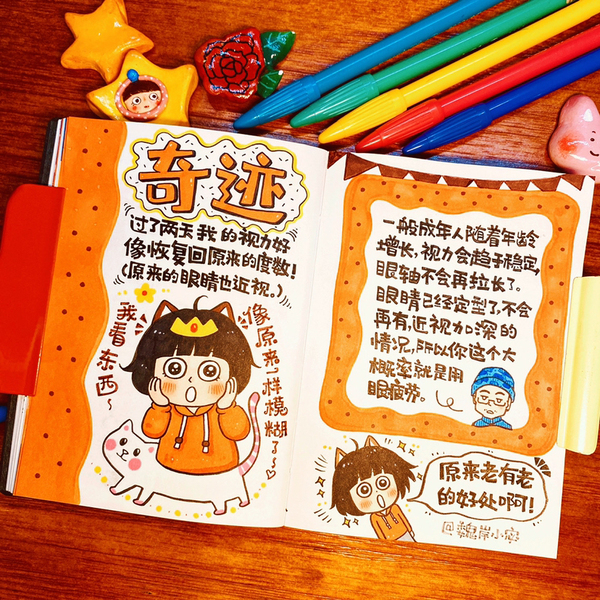 奇迹
过了两天我的视力好
像恢复回原来的度数!
(原来的眼睛也近视。)
我看东西~
像原来一样模糊了~
一般成年人随着年龄
增长,视力会趋于稳定,
眼轴不会再拉长了。
眼睛已经定型了,不会
再有近视加深的
情况,所以你这个大
概率就是用
眼疲劳。
原来老有老
的好处啊!